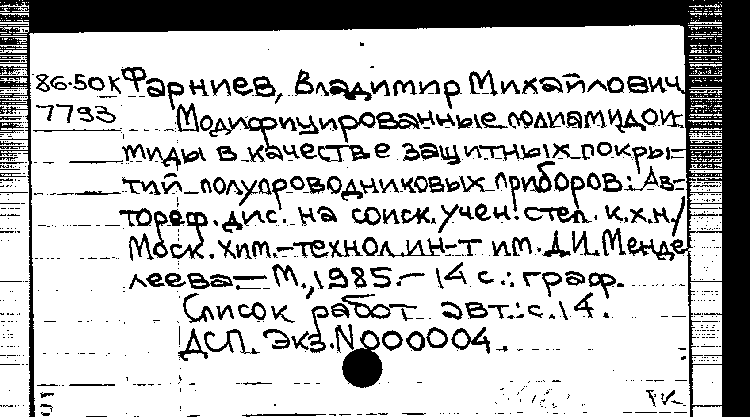 86-50к Фарниев, Владимир Михайлович
7793 Модифицированные полиамидои-
миды в качестве защитных покры-
тий полупроводниковых приборов: Ав-
тореф. дис. на соиск. учен. степ. к.х.н./
Моск. хим.-технол. ин-т им. Д.И. Менде
леева.— М., 1985.— 14 с.: граф.
Список работ авт.: с. 14.
ДСП. Экз. N000004.
РК